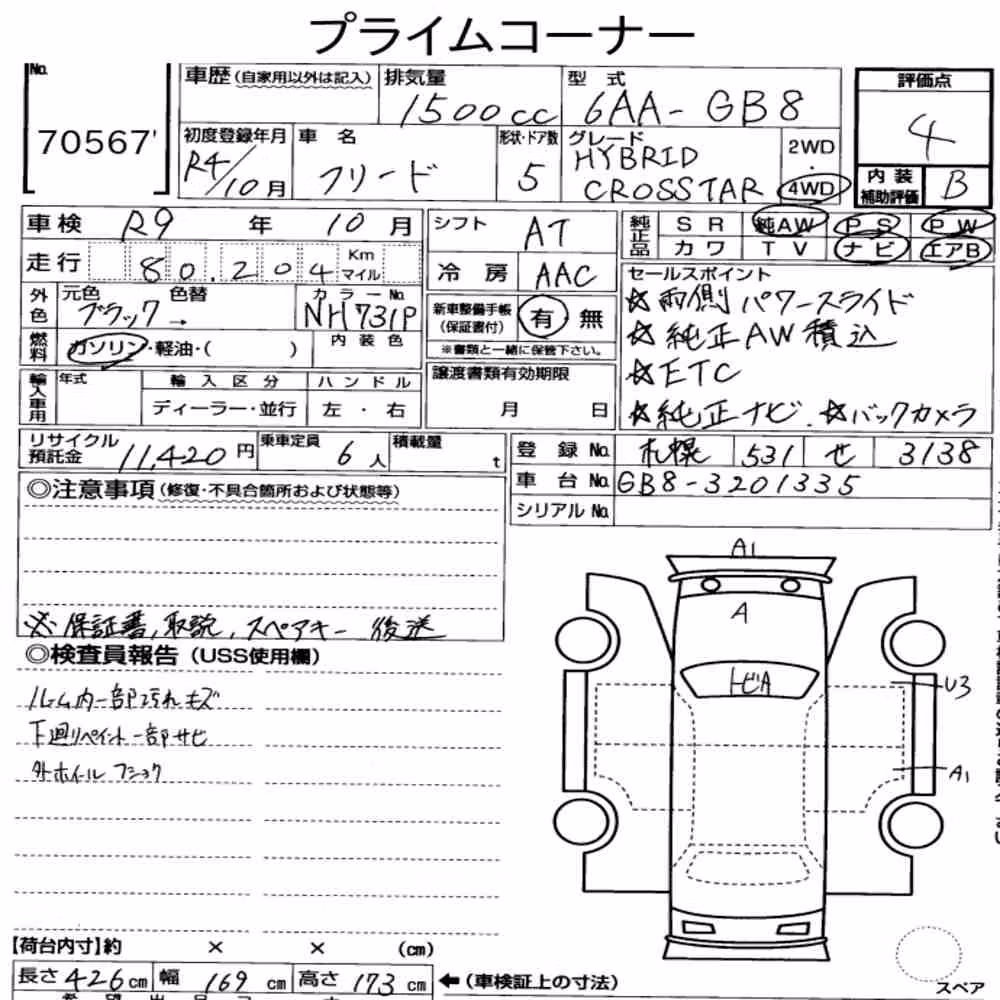 プライムコーナー
No.
70567'
車歴(自家用以外は記入)
排気量
1500cc
型式
6AA-GB8
評価点
4
初度登録年月
R4/10月
車名
フリード
形状・ドア数
5
グレード
HYBRID
CROSSTAR
2WD
・
4WD
内装
補助評価
B
車検 R9年 10月
シフト AT
純正品
SR 純AW PS PW
カワ TV ナビ エアB
走行 80.204 Km マイル
冷房 AAC
セールスポイント
☆両側パワースライド
☆純正AW積込
☆ETC
☆純正ナビ. ☆バックカメラ
外色
元色 色替 カラーNo.
ブラック → NH731P
新車整備手帳
(保証書付)
有 無
※書類と一緒に保管下さい。
燃料
ガソリン・軽油・( )
内装色
輸入車用
年式 輸入区分 ハンドル
ディーラー・並行 左・右
譲渡書類有効期限
月 日
リサイクル
預託金 11,420円
乗車定員 6人
積載量 t
登録No. 札幌 531 せ 3138
車台No. GB8-3201335
シリアルNo.
◎注意事項(修復・不具合箇所および状態等)
※保証書,取説,スペアキー 後送
◎検査員報告(USS使用欄)
ルーム内一部汚れキズ
下廻りペイント一部サビ
外ホイールフショク
A1
A
トビA
U3
A1
【荷台内寸】約 × × (cm)
長さ426cm 幅169cm 高さ173cm ←(車検証上の寸法)
スペア